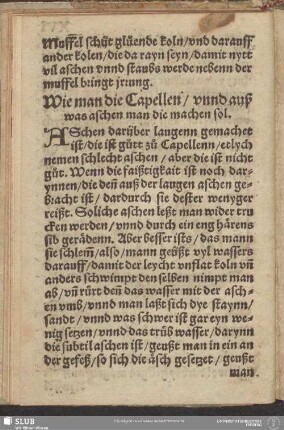 Muffel schüt glüende koln/vnd darauff
ander kolen/die da rayn seyn/damit nytt
vil aschen vnnd staubs werde nebenn der
muffel bringt jrung.
Wie man die Capellen/ vnnd auß
was aschen man die machen sol.
ASchen darüber laugenn gemachet
ist/die ist gütt zü Capellenn/etlych
nemen schlecht aschen / aber die ist nicht
güt. Wenn die faißtigkait ist noch dar-
ynnen/die deñ auß der laugen aschen ge-
bracht ist / dardurch sie dester wenyger
reißt. Soliche aschen leßt man wider tru
cken werden/vnnd durch ein eng härens
sib gerädenn. Aber besser ists/das mann
sie schlem̃/also/mann geüßt vyl wassers
darauff/damit der leycht vnflat koln vñ
anders schwimpt den selben nimpt man
ab/vñ rürt deñ das wasser mit der asch-
en vmb/vnnd man laßt sich dye staynn/
sandt / vnnd was schwer ist gar eyn we-
nig setzen/vnnd das trüb wasser/darynn
die subtil aschen ist/geußt man in ein an
der gefeß/so sich die äsch gesetzet / geußt
man
SLUB